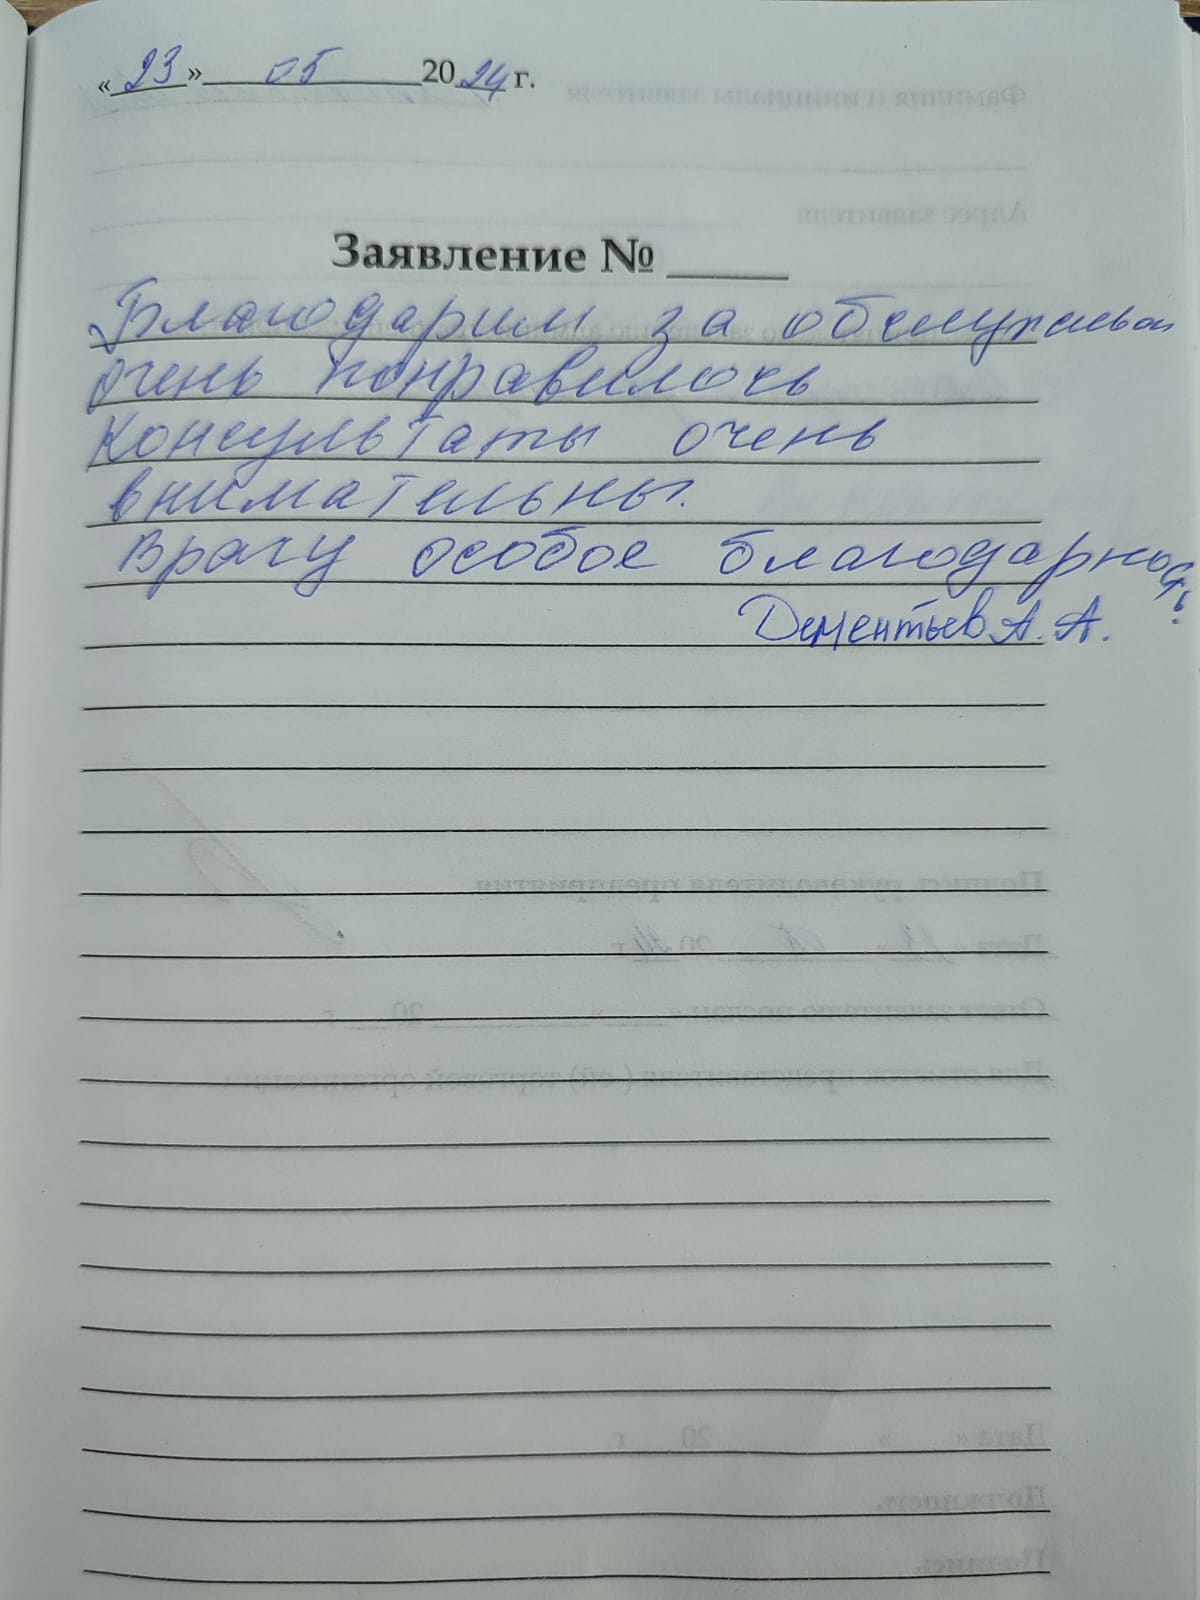 «23» 05 2024 г.
Заявление № ____
Благодарим за
очень понравилось
Консультаты очень
внимательны.
Врачу особое благодарность
Дементьев А. А.